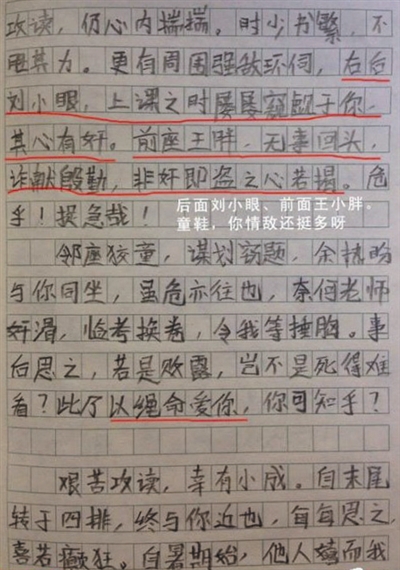 攻读，仍心内揣揣。时少书繁，不
胜其力。更有周围强敌环伺，右后
刘小眼，上课之时屡屡窥觑于你，
其心有奸。前座王胖，无事回头，
诈献殷勤，非奸即盗之心若揭。危
乎！捉急哉！
后面刘小眼、前面王小胖。
童鞋，你情敌还挺多呀
邻座狡童，谋划窃题，余热盼
与你同坐，虽危亦往也，奈何老师
奸滑，临考换卷，令我等捶胸。事
后思之，若是败露，岂不是死得难
看？此乃以绳命爱你，你可知乎？
艰苦攻读，幸有小成。自末尾
转于四排，终与你近也，每每思之，
喜若癫狂。自暑期始，他人嬉而我